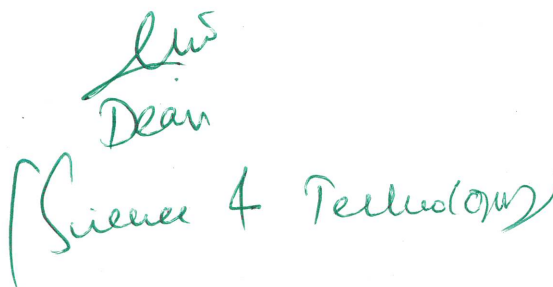 Dean
(Science & Technology